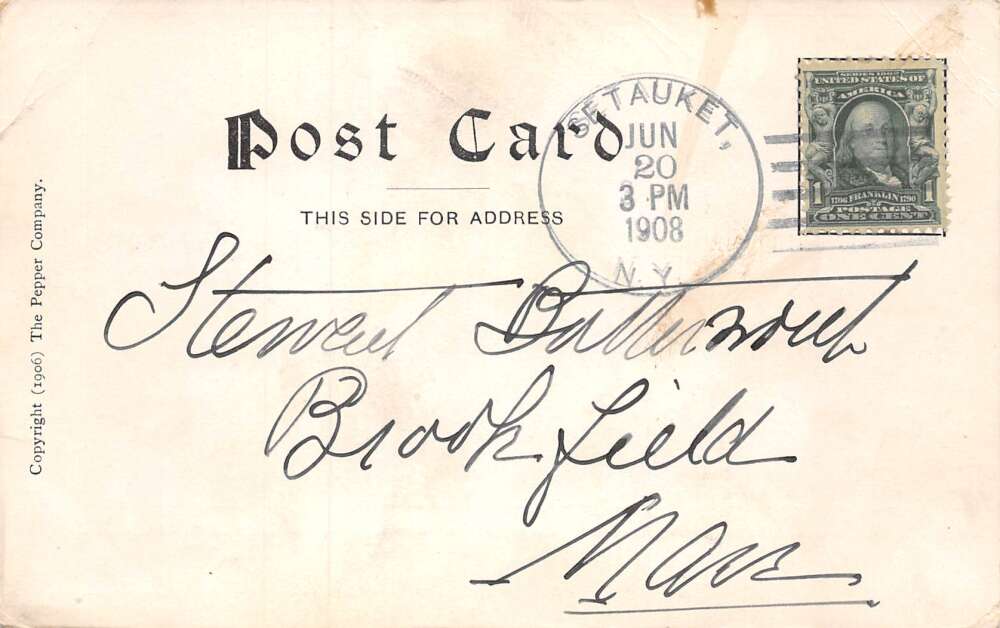 Post Card
THIS SIDE FOR ADDRESS
SETAUKET,
JUN
20
3 PM
1908
N.Y.
SERIES 1902
UNITED STATES OF
AMERICA
1 1
1706 FRANKLIN 1790
POSTAGE
ONE CENT
Stewart Butterworth
Brookfield
Mass
Copyright (1906) The Pepper Company.